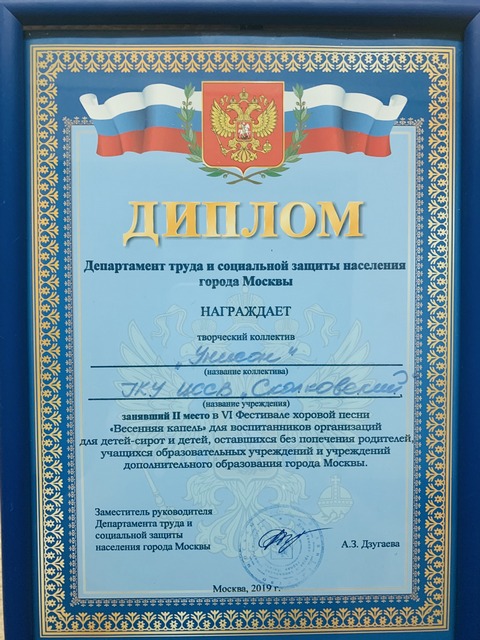 ДИПЛОМ
Департамент труда и социальной защиты населения
города Москвы
НАГРАЖДАЕТ
творческий коллектив
„Унисон“
(название коллектива)
ГКУ ЦССВ Сколковский
(название учреждения)
занявший II место в VI Фестивале хоровой песни
«Весенняя капель» для воспитанников организаций
для детей-сирот и детей, оставшихся без попечения родителей,
учащихся образовательных учреждений и учреждений
дополнительного образования города Москвы.
Заместитель руководителя
Департамента труда и
социальной защиты
населения города Москвы
А.З. Дзугаева
Москва, 2019 г.